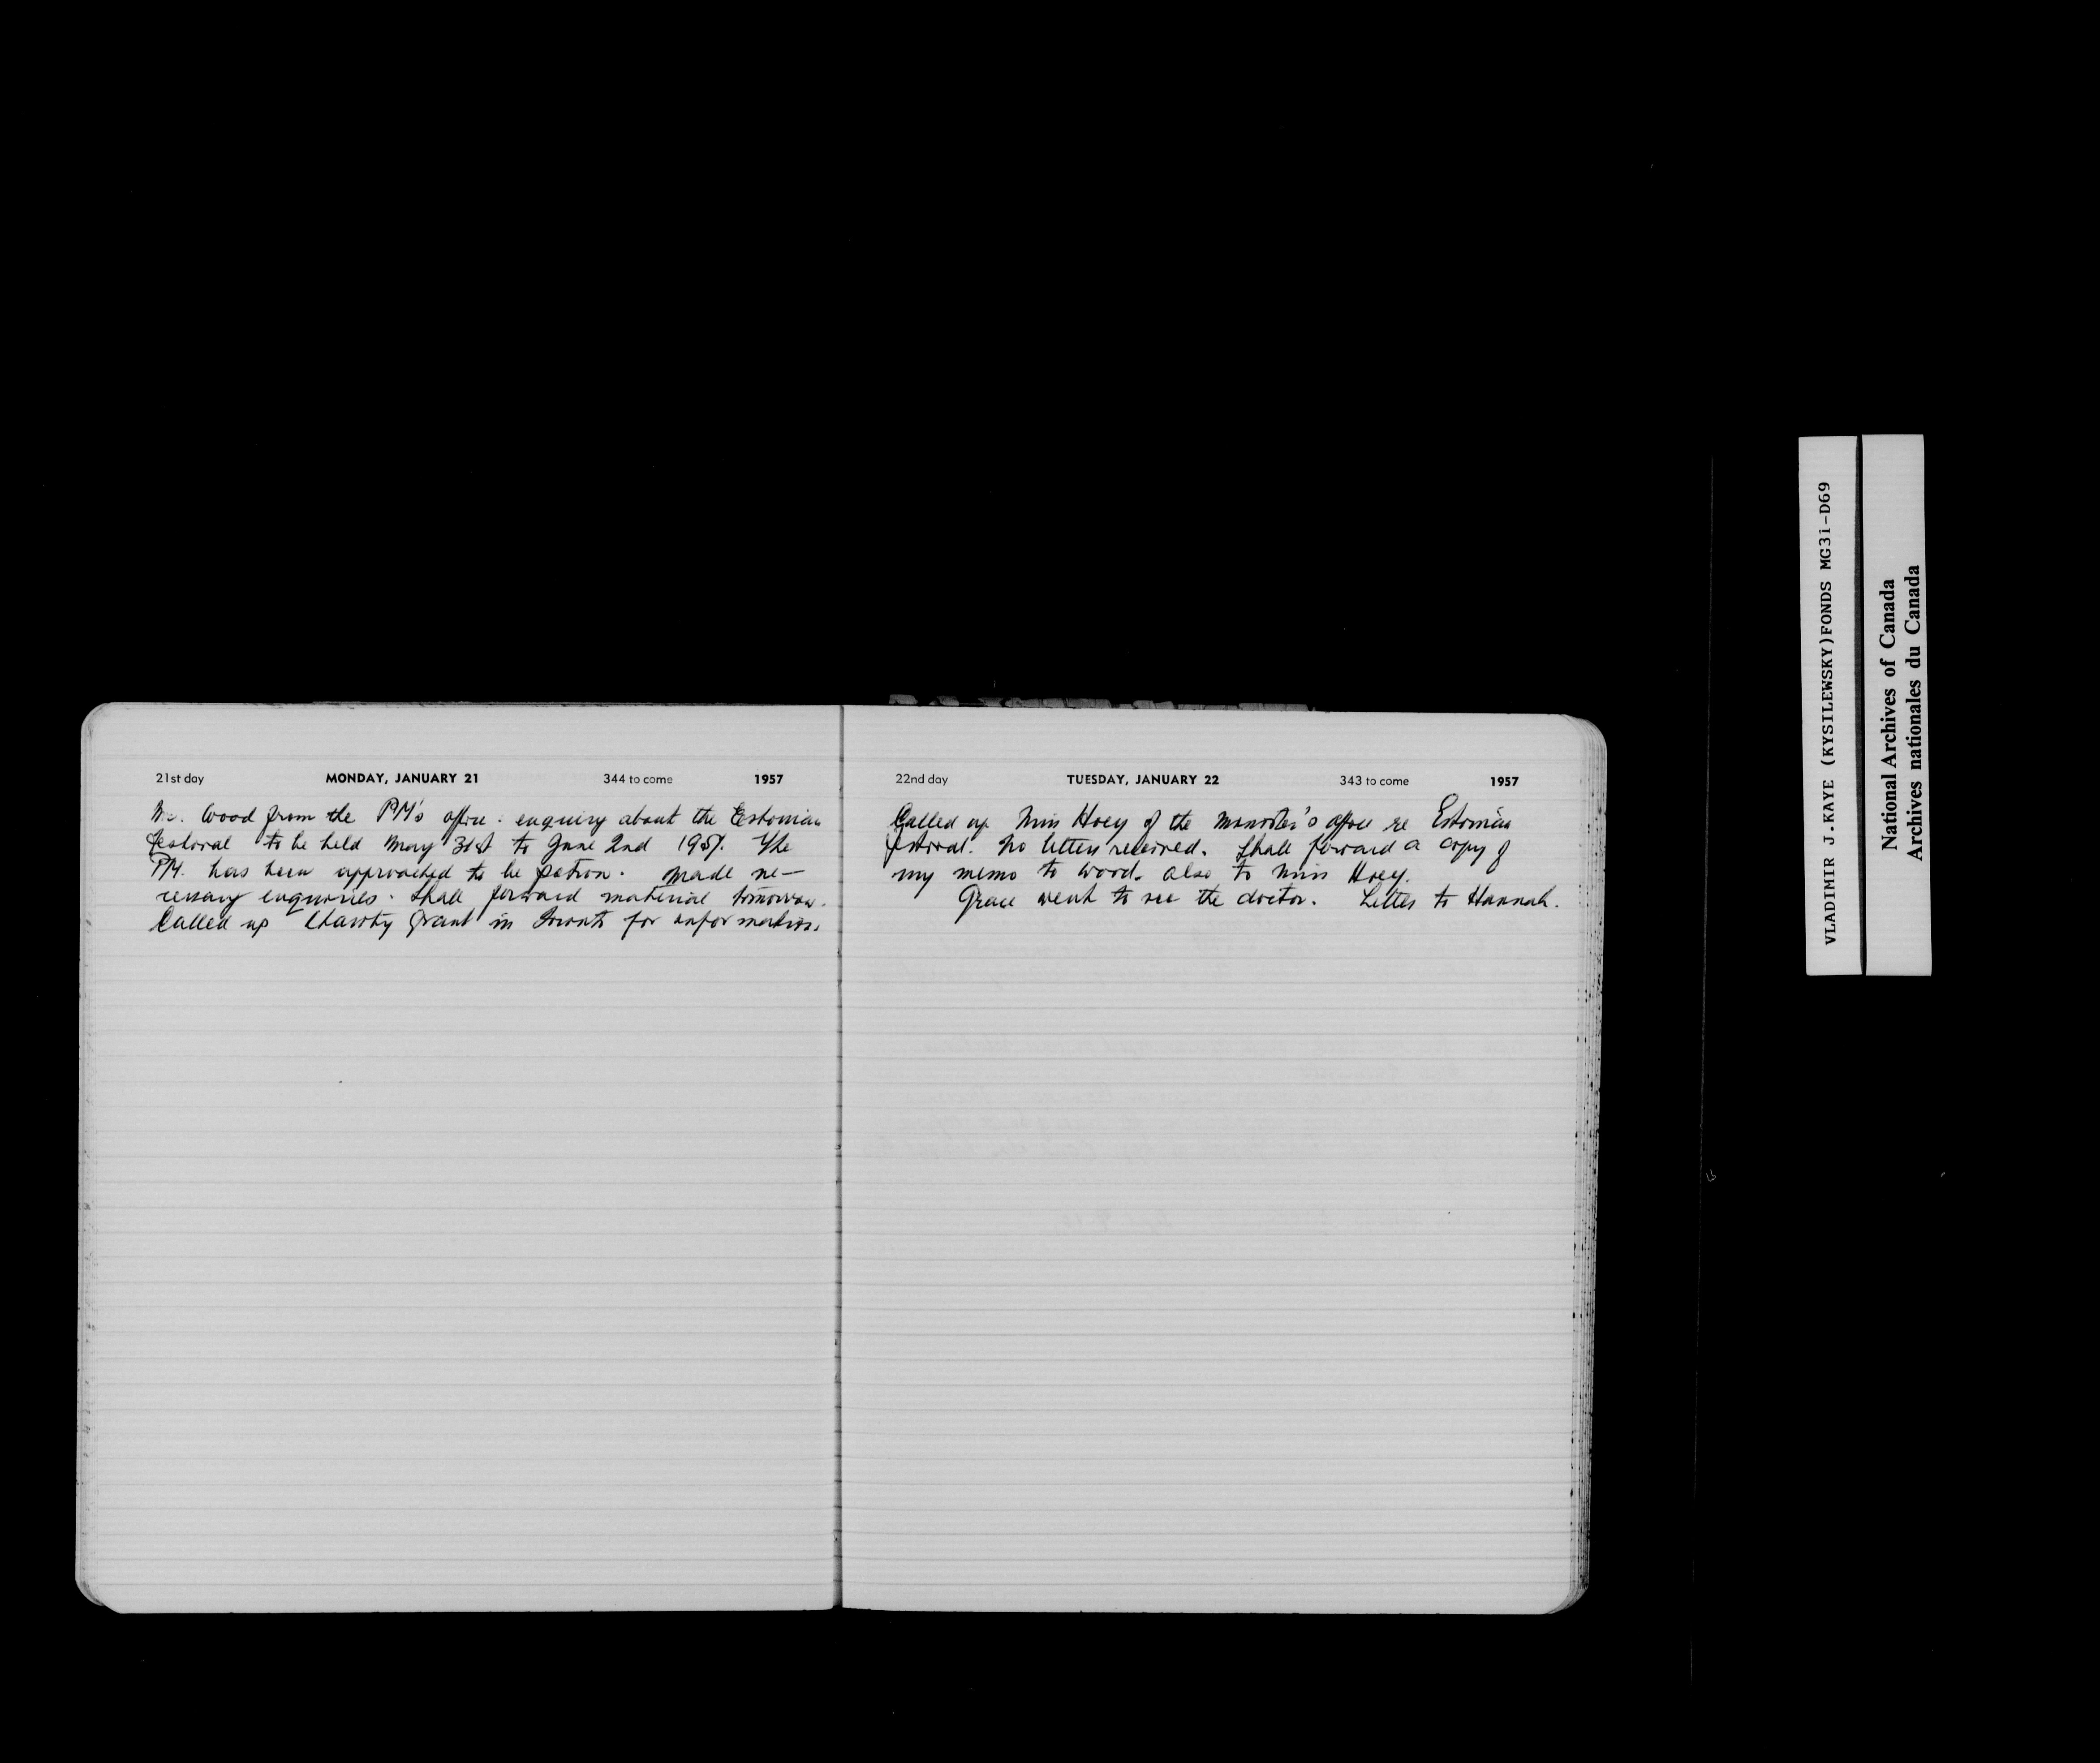 21st day MONDAY, JANUARY 21 344 to come 1957
Mr. Wood from the PM's office: enquiry about the Estonian
festival to be held May 31st to June 2nd 1957. The
P.M. has been approached to be patron. Made ne-
cessary enquiries. Shall forward material tomorrow.
Called up Charity Grant in Toronto for information.
22nd day TUESDAY, JANUARY 22 343 to come 1957
Called up Miss Hoey of the Minister's office re Estonian
festival. No letters received. Shall forward a copy of
my memo to Wood. Also to Miss Hoey.
Grace went to see the doctor. Letter to Hannah.
VLADIMIR J.KAYE (KYSILEWSKY)FONDS MG31-D69
National Archives of Canada
Archives nationales du Canada